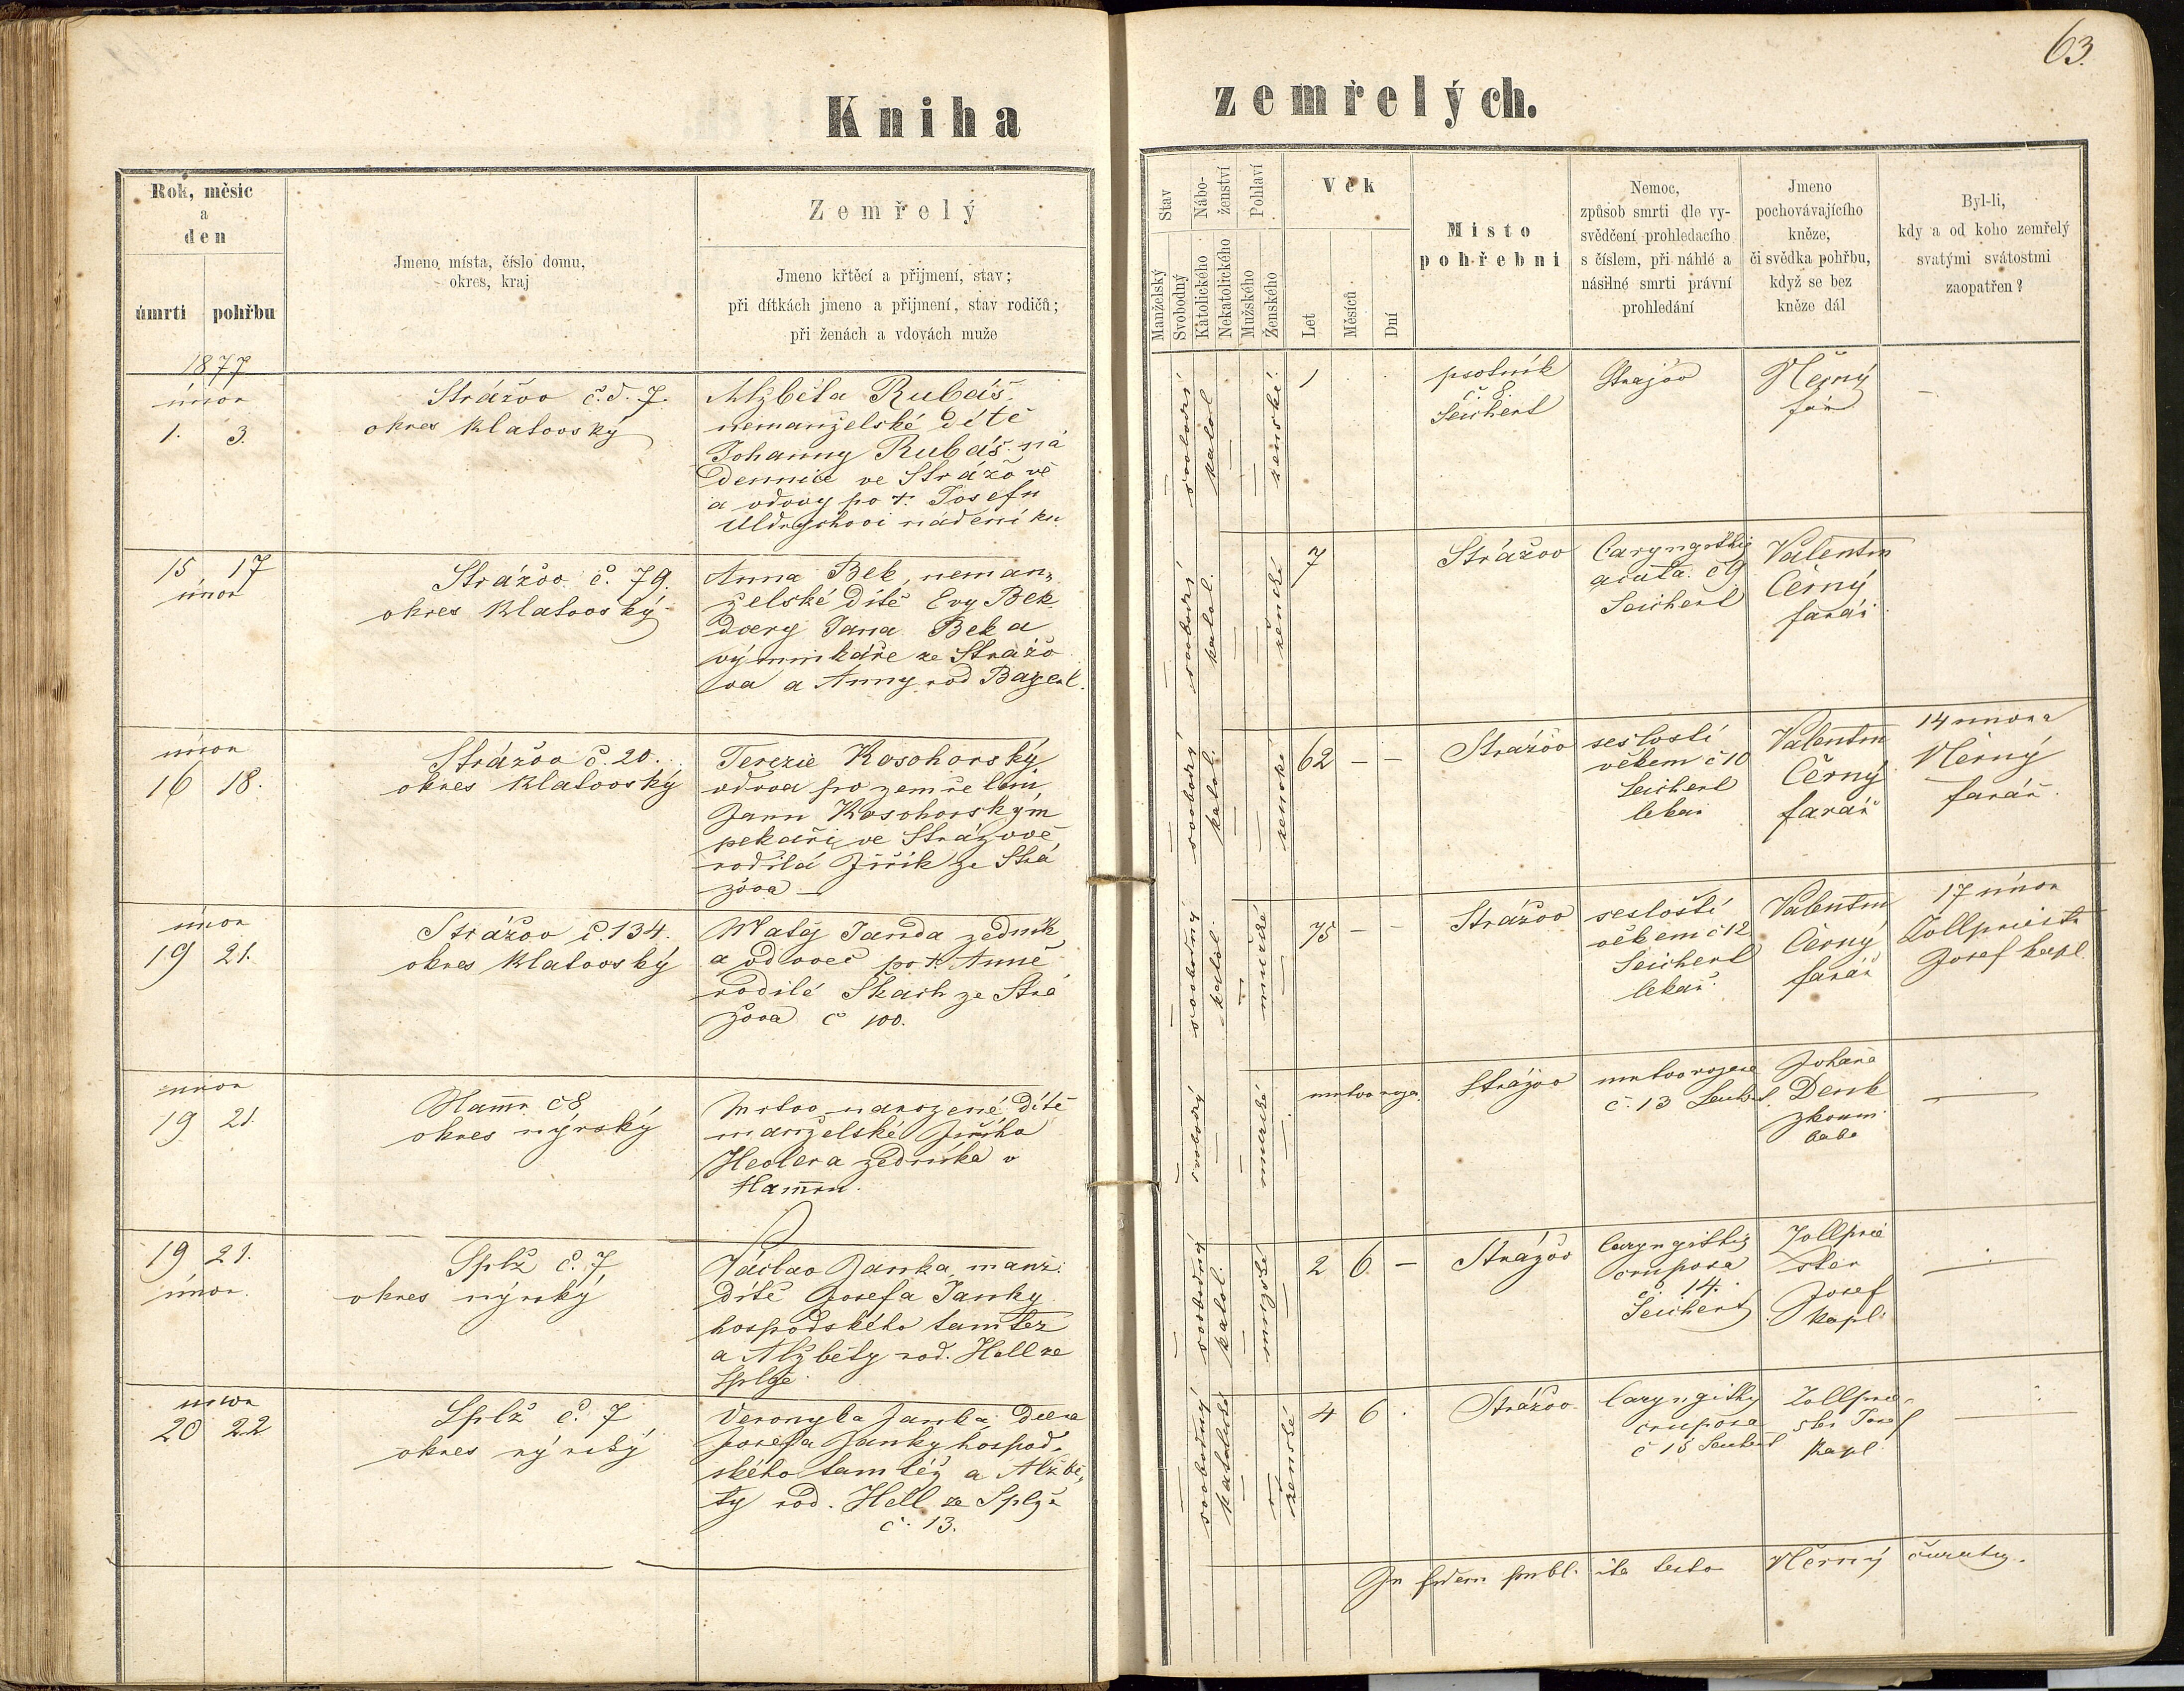 63.
Kniha zemřelých.
Rok, měsíc
a
den
úmrti
pohřbu
Jmeno místa, číslo domu,
okres, kraj
Zemřelý
Jmeno křtěcí a přijmení, stav;
při dítkách jmeno a přijmení, stav rodičů;
při ženách a vdovách muže
Stav
Manželský
Svobodný
Nábo-
ženství
Katolického
Nekatolického
Pohlaví
Mužského
Ženského
Věk
Let
Měsíců
Dní
Místo
pohřební
Nemoc,
způsob smrti dle vy-
svědčení prohledacího
s číslem, při náhlé a
násilné smrti právní
prohledání
Jmeno
pochovávajícího
kněze,
či svědka pohřbu,
když se bez
kněze dál
Byl-li,
kdy a od koho zemřelý
svatými svátostmi
zaopatřen?
1877
únor
1. 3.
Strážov č.d. 7.
okres Klatovský
Alžběta Rubáš.
nemanželské dítě
Johanny Rubáš ná
dennice ve Strážově
a vdovy po +. Josefu
Uldrychovi nádeníku
svobodné
katol
ženské
1
psotník
č. 8.
Seichert
Stražov
Černý
far
15 17
únor
Strážov č. 79.
okres Klatovský
Anna Bek, neman„
želské dítě Evy Bek
dcery Jana Beka
výminkáře ze Strážo
va a Anny rod Bayerl.
svobodné
katol.
ženské
7
Strážov
Laryngithis
acuta č 9
Seichert
Valentin
Černý
farář
únor
16 18.
Strážov č. 20.
okres Klatovský
Terezie Kosohorský
vdova po zemřelém
Janu Kosohorským
pekaři ve Strážově
rodilá Jiřík ze Strá
žova —
svobodný
katol.
ženské
62 – –
Strážov
sešlostí
věkem č 10
Seichert
lekař
Valentin
Černý
farář
14 února
Černý
farář.
únor
19 21.
Strážov č. 134.
okres Klatovský
Matěj Janda zedník
a vdovec po +. Anně
rodilé Skach ze Strá
žova č 100.
svobodný
katol.
mužské
75 – –
Strážov
sešlostí
věkem č 12
Seichert
lekař.
Valentin
Černý
farář
17 únor
Zollpriester
Josef kapl.
únor
19 21.
Hamr č 8
okres nýrský
Mrtvo narozené dítě
manželské Jiřího
Heolera zedníka v
Hamru.
svobodný
mužské
mrtvo roze.
Strážov
mrtvorozené
č. 13 Seichert.
Johana
Denk
zkoum.
baba
19 21.
únor.
Splž č. 7
okres nýrský
Václav Janka, manž.
dítě Josefa Janky
hospodského tamtéž
a Alžběty rod. Hell ze
Splže
svobodný
katol.
mužské
2 6 –
Strážov
Laryngithis
cruposa
č. 14.
Seichert
Zollprie
ster
Josef
kapl.
únor
20 22
Splž č. 7
okres nýrský
Veronyka Janka dcera
Josefa Janky hospod„
ského tamtéž a Alžbě„
ty rod. Hell ze Splže
č. 13.
svobodný
katolické
ženské
4 6
Strážov
Laryngithis
cruposa
č 15 Seichert
Zollprie„
ster Josef
kapl.
In fidem publ. ita testor Černý curatus.